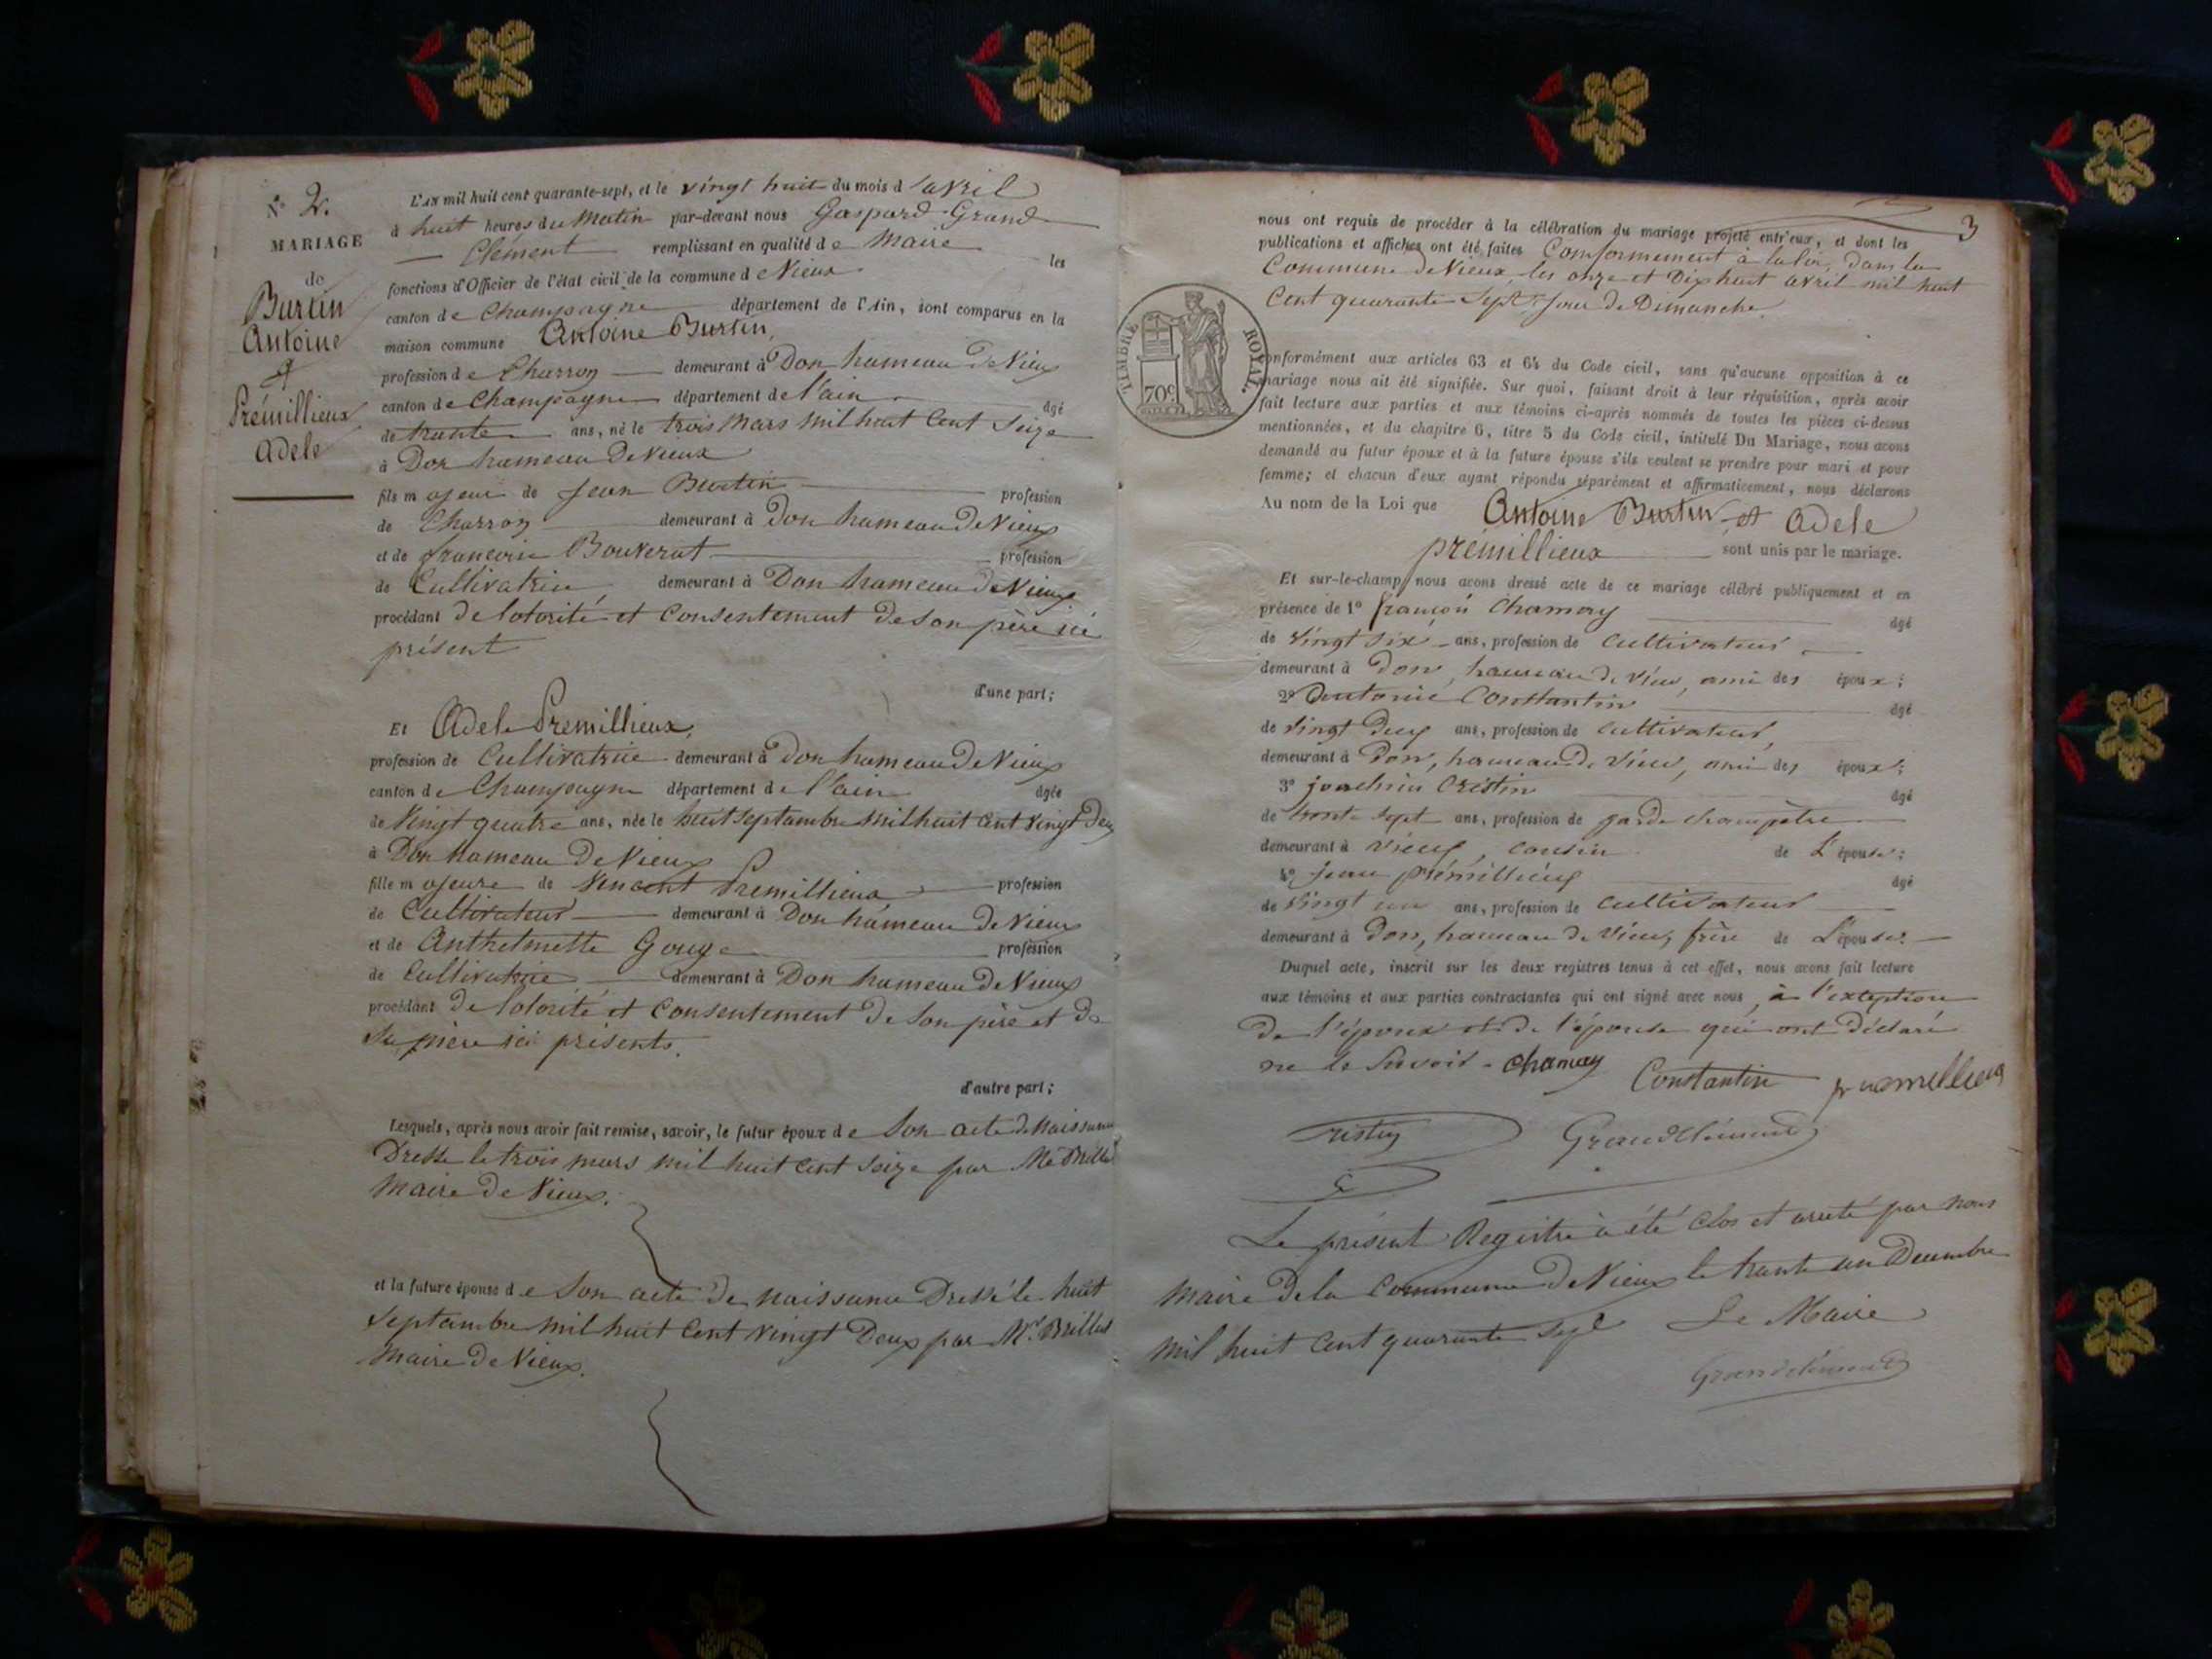 N° 2.
MARIAGE
de
Burtin
Antoine
et
Prémillieux
Adele
L'AN mil huit cent quarante-sept, et le vingt huit du mois d'avril
à huit heures du Matin par-devant nous Gaspard Grand
Clément remplissant en qualité de Maire les
fonctions d'Officier de l'état civil de la commune de Vieux
canton de Champagne département de l'Ain, sont comparus en la
maison commune Antoine Burtin,
profession de Charron demeurant à Don hameau de Vieux
canton de Champagne département de l'ain âgé
de trente ans, né le trois Mars mil huit Cent Seize
à Don hameau de Vieux
fils majeur de Jean Burtin profession
de Charron demeurant à Don hameau de Vieux
et de francoise Bouverat profession
de Cultivatrice, demeurant à Don hameau de Vieux
procédant de lotorité et Consentement de son père ici
présent
d'une part;
Et Adele Premillieux,
profession de Cultivatrice demeurant à Don hameau de Vieux
canton de Champagne département de l'ain âgée
de Vingt quatre ans, née le huit Septambre mil huit Cent Vingt Deux
à Don hameau De Vieux
fille majeure de Vencent Premillieux profession
de Cultivateur demeurant à Don hameau de Vieux
et de Anthelmette Gouge profession
de Cultivatrice demeurant à Don hameau de Vieux
procédant de lotorité et Consentement de Son père et de
Sa mère ici présents.
d'autre part;
Lesquels, après nous avoir fait remise, savoir, le futur époux de Son acte de Naissance
Dressé le trois mars mil huit Cent Seize par
Maire De Vieux.
et la future épouse de Son acte de Naissance Dressé le huit
Septambre mil huit Cent Vingt Deux par Mr. Brillat
Maire De Vieux.
3
nous ont requis de procéder à la célébration du mariage projeté entr'eux, et dont les
publications et affiches ont été faites Conformement à la loi, dans la
Commune de Vieux les onze et Dix huit avril mil huit
Cent quarante Sept, Jour de Dimanche.
TIMBRE ROYAL.
70c.
conformément aux articles 63 et 64 du Code civil, sans qu'aucune opposition à ce
mariage nous ait été signifiée. Sur quoi, faisant droit à leur réquisition, après avoir
fait lecture aux parties et aux témoins ci-après nommés de toutes les pièces ci-dessus
mentionnées, et du chapitre 6, titre 5 du Code civil, intitulé Du Mariage, nous avons
demandé au futur époux et à la future épouse s'ils veulent se prendre pour mari et pour
femme; et chacun d'eux ayant répondu séparément et affirmativement, nous déclarons
Au nom de la Loi que Antoine Burtin et Adele
premillieux sont unis par le mariage.
Et sur-le-champ nous avons dressé acte de ce mariage célébré publiquement et en
présence de 1° françois Chamay âgé
de Vingt Six ans, profession de Cultivateur
demeurant à Don, hameau de Vieu, ami des époux;
2° Constantin âgé
de Vingt Deux ans, profession de Cultivateur,
demeurant à Don, hameau de Vieu, ami des époux;
3° joachim Cristin âgé
de trente Sept ans, profession de garde champêtre
demeurant à Vieux, cousin de L'épouse;
4° Jean prémillieux âgé
de Vingt un ans, profession de Cultivateur
demeurant à Don, hameau de Vieu, frère de L'épouse.
Duquel acte, inscrit sur les deux registres tenus à cet effet, nous avons fait lecture
aux témoins et aux parties contractantes qui ont signé avec nous, à l'exception
de l'époux et de l'épouse qui ont déclaré
ne le Savoir. Chamay Constantin
Cristin Grandclément
Le présent Registre à été Clos et areté par nous
Maire De la Commune De Vieux le trante un Decembre
Mil huit Cent quarante Sept Le Maire
Grandclément